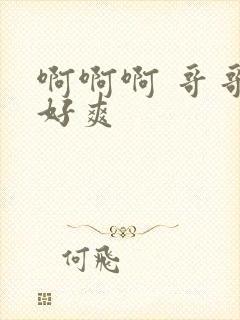 啊啊啊 哥哥
好爽
何飛